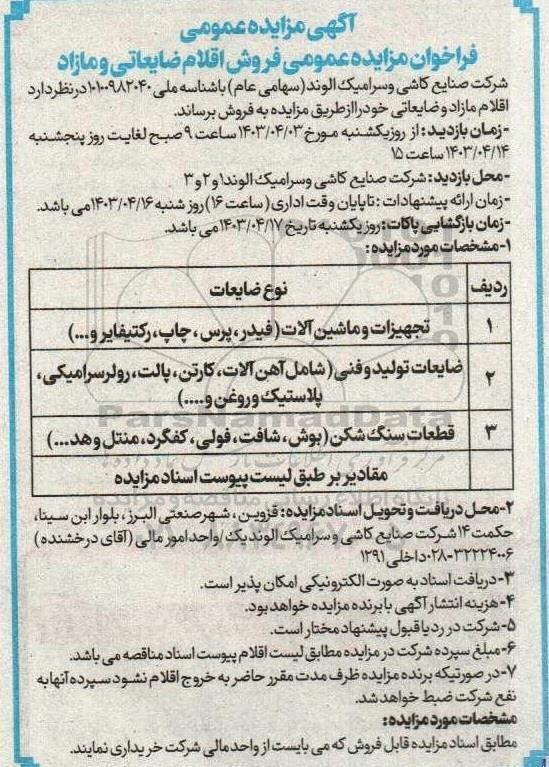 آگهی مزایده عمومی
فراخوان مزایده عمومی فروش اقلام ضایعاتی و مازاد
شرکت صنایع کاشی وسرامیک الوند (سهامی عام) باشناسه ملی ۱۰۱۰۰۹۸۲۰۴۰ درنظردارد
اقلام مازاد و ضایعاتی خودرا ازطریق مزایده به فروش برساند.
-زمان بازدید: از روزیکشنبه مورخ ۱۴۰۳/۰۴/۰۳ ساعت ۹ صبح لغایت روز پنجشنبه
۱۴۰۳/۰۴/۱۴ ساعت ۱۵
-محل بازدید: شرکت صنایع کاشی وسرامیک الوند۱ و ۲ و ۳
-زمان ارائه پیشنهادات : تا پایان وقت اداری ( ساعت ۱۶) روز شنبه ۱۴۰۳/۰۴/۱۶ می باشد.
-زمان بازگشایی پاکات: روز یکشنبه تاریخ ۱۴۰۳/۰۴/۱۷ می باشد.
۱-مشخصات مورد مزایده:
ردیف نوع ضایعات
۱ تجهیزات و ماشین آلات ( فیدر، پرس ، چاپ، رکتیفایر و...)
۲ ضایعات تولید و فنی ( شامل آهن آلات، کارتن، پالت، رولرسرامیکی،
پلاستیک و روغن و....)
۳ قطعات سنگ شکن ( بوش ، شافت، فولی، کفگرد، منتل وهد...)
مقادیر بر طبق لیست پیوست اسناد مزایده
ParsNamadData
پایگاه اطلاع رسانی مناقصه و مزایده
۲-محل دریافت و تحویل اسناد مزایده: قزوین ، شهر صنعتی البرز، بلوار ابن سینا،
حکمت ۱۴ شرکت صنایع کاشی و سرامیک الوند یک/ واحد امور مالی ( آقای درخشنده )
۰۲۸-۳۲۲۲۴۰۰۶ داخلی ۱۲۹۱
۳-دریافت اسناد به صورت الکترونیکی امکان پذیر است.
۴-هزینه انتشار آگهی با برنده مزایده خواهد بود.
۵-شرکت در رد یا قبول پیشنهاد مختار است.
۶-مبلغ سپرده شرکت در مزایده مطابق لیست اقلام پیوست اسناد مناقصه می باشد.
۷-در صورتیکه برنده مزایده ظرف مدت مقرر حاضر به خروج اقلام نشود سپرده آنها به
نفع شرکت ضبط خواهد شد.
مشخصات مورد مزایده:
مطابق اسناد مزایده قابل فروش که می بایست از واحد مالی شرکت خریداری نمایند.